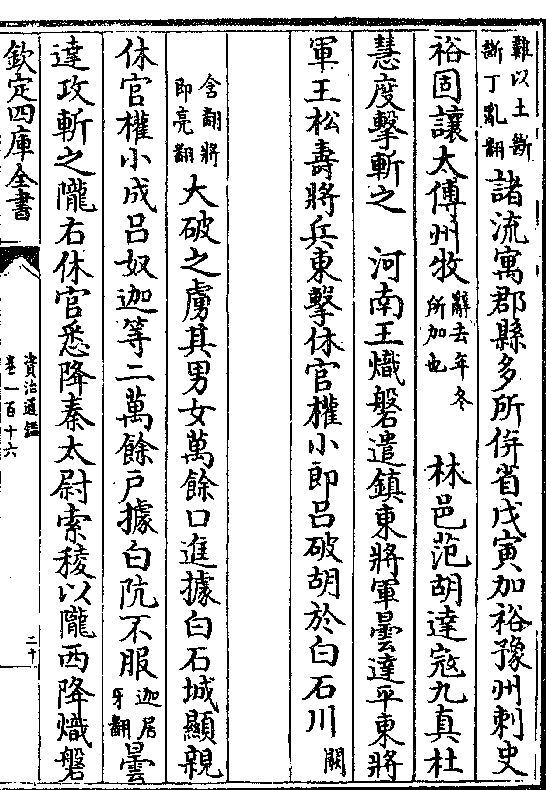 難以土斷
斷丁亂翻
諸流寓郡縣多所併省戊寅加裕豫州刺史
裕固讓太傅州牧
辭去年冬
所加也
林邑范胡達寇九真杜
慧度擊斬之 河南王熾磐遣鎮東將軍曇達平東將
軍王松壽將兵東擊休官權小郎呂破胡於白石川
闕
含翻將
即亮翻
大破之虜其男女萬餘口進據白石城顯親
休官權小成呂奴迦等二萬餘戶據白阬不服
迦居
牙翻
曇
達攻斬之隴右休官悉降秦太尉索稜以隴西降熾磐
欽定四庫全書
資治通鑑
卷一百十六
二十